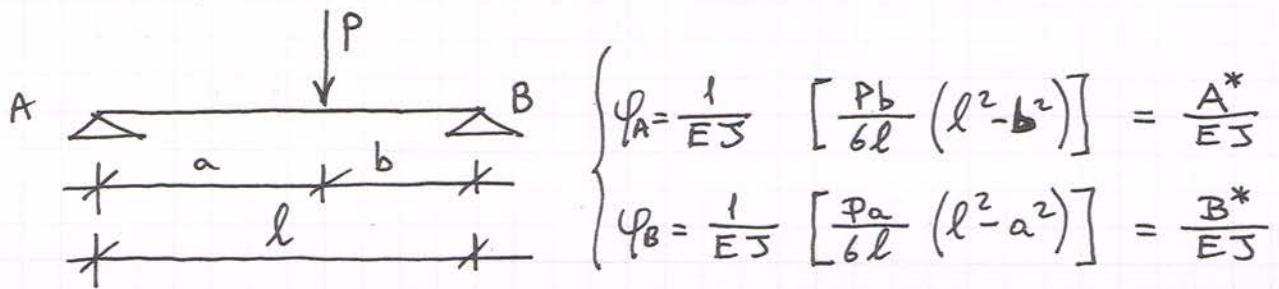 P
A B
a b
l
φA = 1/EJ [Pb/6l (l²-b²)] = A*/EJ
φB = 1/EJ [Pa/6l (l²-a²)] = B*/EJ